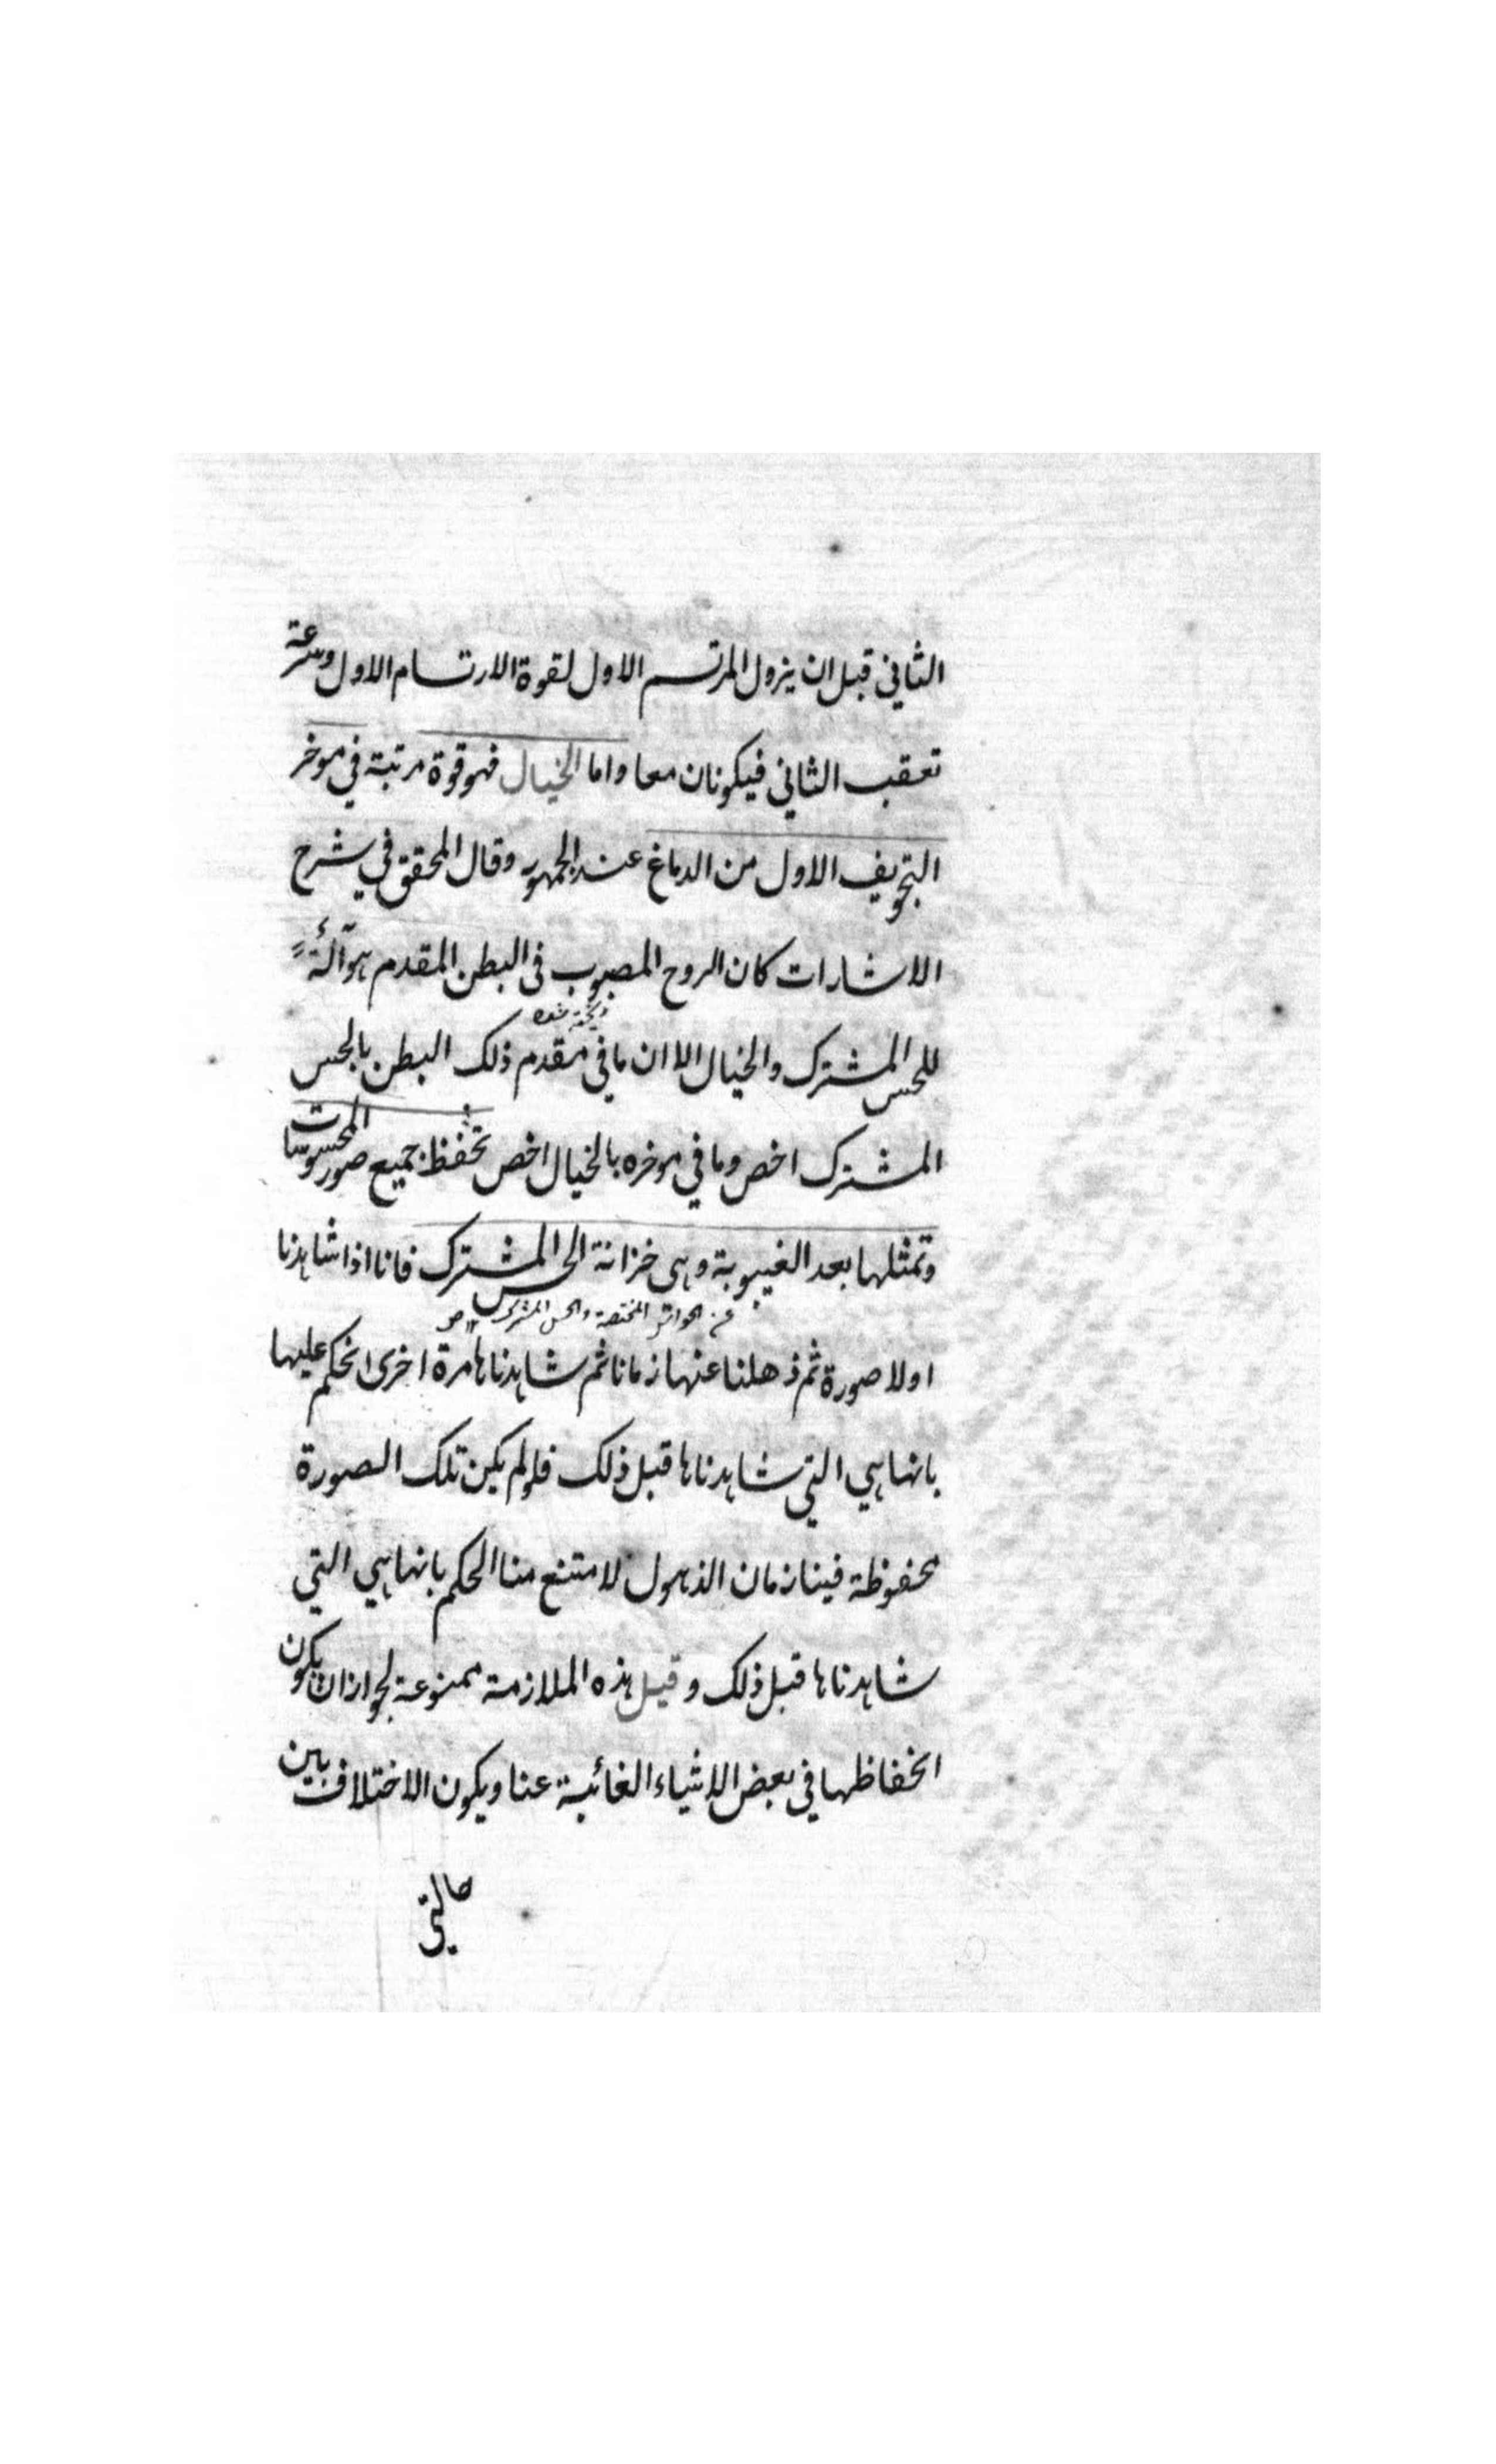 الثاني قبل ان يزول المرتسم الاول لقوة الارتسام الاول وسرعة
تعقب الثاني فيكونان معا واما الخيال فهو قوة مرتبة في موخر
التجويف الاول من الدماغ عند الجمهور وقال المحقق في شرح
الاشارات كان الروح المصبوب في البطن المقدم هو آلة
ريخته شده
للحس المشترك والخيال الا ان ما في مقدم ذلك البطن بالحس
المشترك اخص وما في موخره بالخيال اخص تحفظ جميع صور المحسوسات
وتمثلها بعد الغيبوبة وهى خزانة الحس المشترك فانا اذا شاهدنا
المختصة والحس المشترك
اولا صورة ثم ذهلنا عنها زمانا ثم شاهدناها مرة اخرى نحكم عليها
بانها هي التي شاهدناها قبل ذلك فلو لم يكن تلك الصورة
محفوظة فينا زمان الذهول لامتنع منا الحكم بانها هي التي
شاهدناها قبل ذلك وقيل هذه الملازمة ممنوعة لجواز ان يكون
انحفاظها في بعض الاشياء الغائبة عنا ويكون الاختلاف بين
حالتي